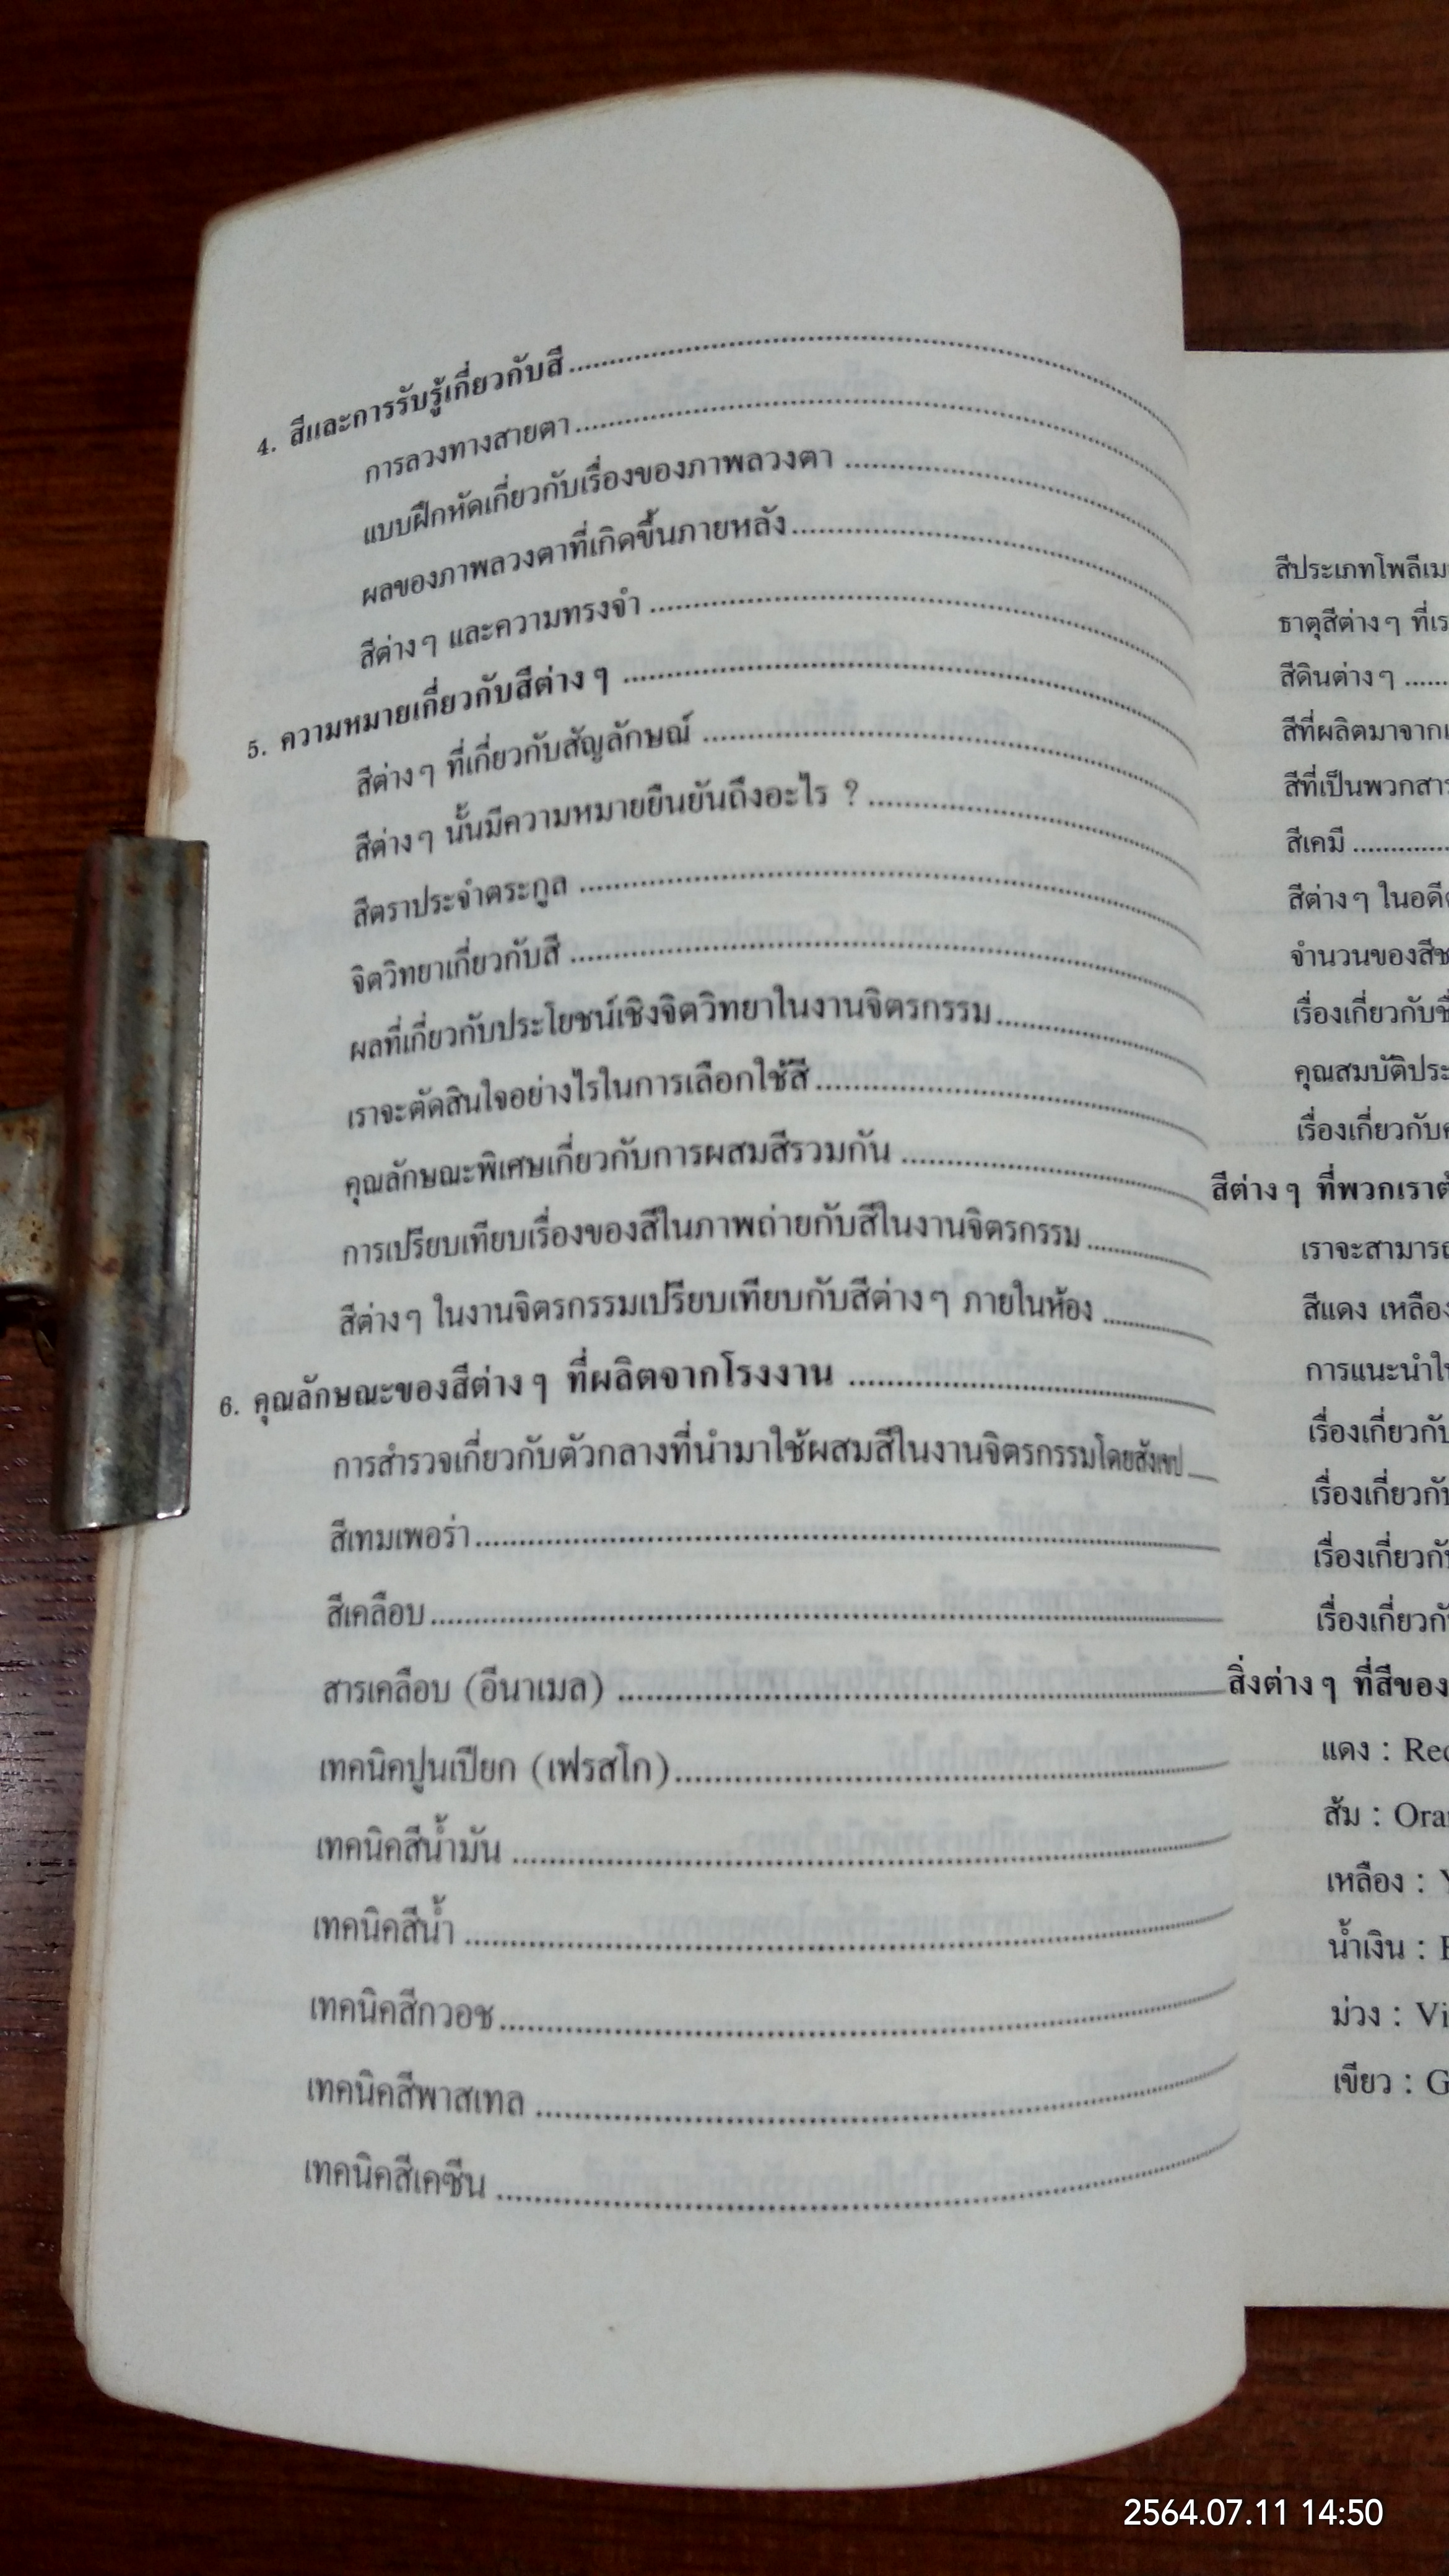 4. สีและการรับรู้เกี่ยวกับสี
การลวงทางสายตา
แบบฝึกหัดเกี่ยวกับเรื่องของภาพลวงตา
ผลของภาพลวงตาที่เกิดขึ้นภายหลัง
สีต่างๆ และความทรงจำ
5. ความหมายเกี่ยวกับสีต่างๆ
สีต่างๆ ที่เกี่ยวกับสัญลักษณ์
สีต่างๆ นั้นมีความหมายยืนยันถึงอะไร ?
สีตราประจำตระกูล
จิตวิทยาเกี่ยวกับสี
ผลที่เกี่ยวกับประโยชน์เชิงจิตวิทยาในงานจิตรกรรม
เราจะตัดสินใจอย่างไรในการเลือกใช้สี
คุณลักษณะพิเศษเกี่ยวกับการผสมสีรวมกัน
การเปรียบเทียบเรื่องของสีในภาพถ่ายกับสีในงานจิตรกรรม
สีต่างๆ ในงานจิตรกรรมเปรียบเทียบกับสีต่างๆ ภายในห้อง
6. คุณลักษณะของสีต่างๆ ที่ผลิตจากโรงงาน
การสำรวจเกี่ยวกับตัวกลางที่นำมาใช้ผสมสีในงานจิตรกรรมโดยสังเขป
สีเทมเพอร่า
สีเคลือบ
สารเคลือบ (อีนาเมล)
เทคนิคปูนเปียก (เฟรสโก)
เทคนิคสีน้ำมัน
เทคนิคสีน้ำ
เทคนิคสีกวอช
เทคนิคสีพาสเทล
เทคนิคสีเคซีน
สีประเภทโพลีเม
ธาตุสีต่างๆ ที่เร
สีดินต่างๆ
สีที่ผลิตมาจาก
สีที่เป็นพวกสาร
สีเคมี
สีต่างๆ ในอดีต
จำนวนของสีช
เรื่องเกี่ยวกับ
คุณสมบัติประ
เรื่องเกี่ยวกับ
สีต่างๆ ที่พวกเรา
เราจะสามารถ
สีแดง เหลือง
การแนะนำใ
เรื่องเกี่ยวกับ
เรื่องเกี่ยวกับ
เรื่องเกี่ยวกับ
เรื่องเกี่ยวกับ
สิ่งต่างๆ ที่สีของ
แดง : Red
ส้ม : Ora
เหลือง : Y
น้ำเงิน :
ม่วง : Vi
เขียว : G
2564.07.11 14:50